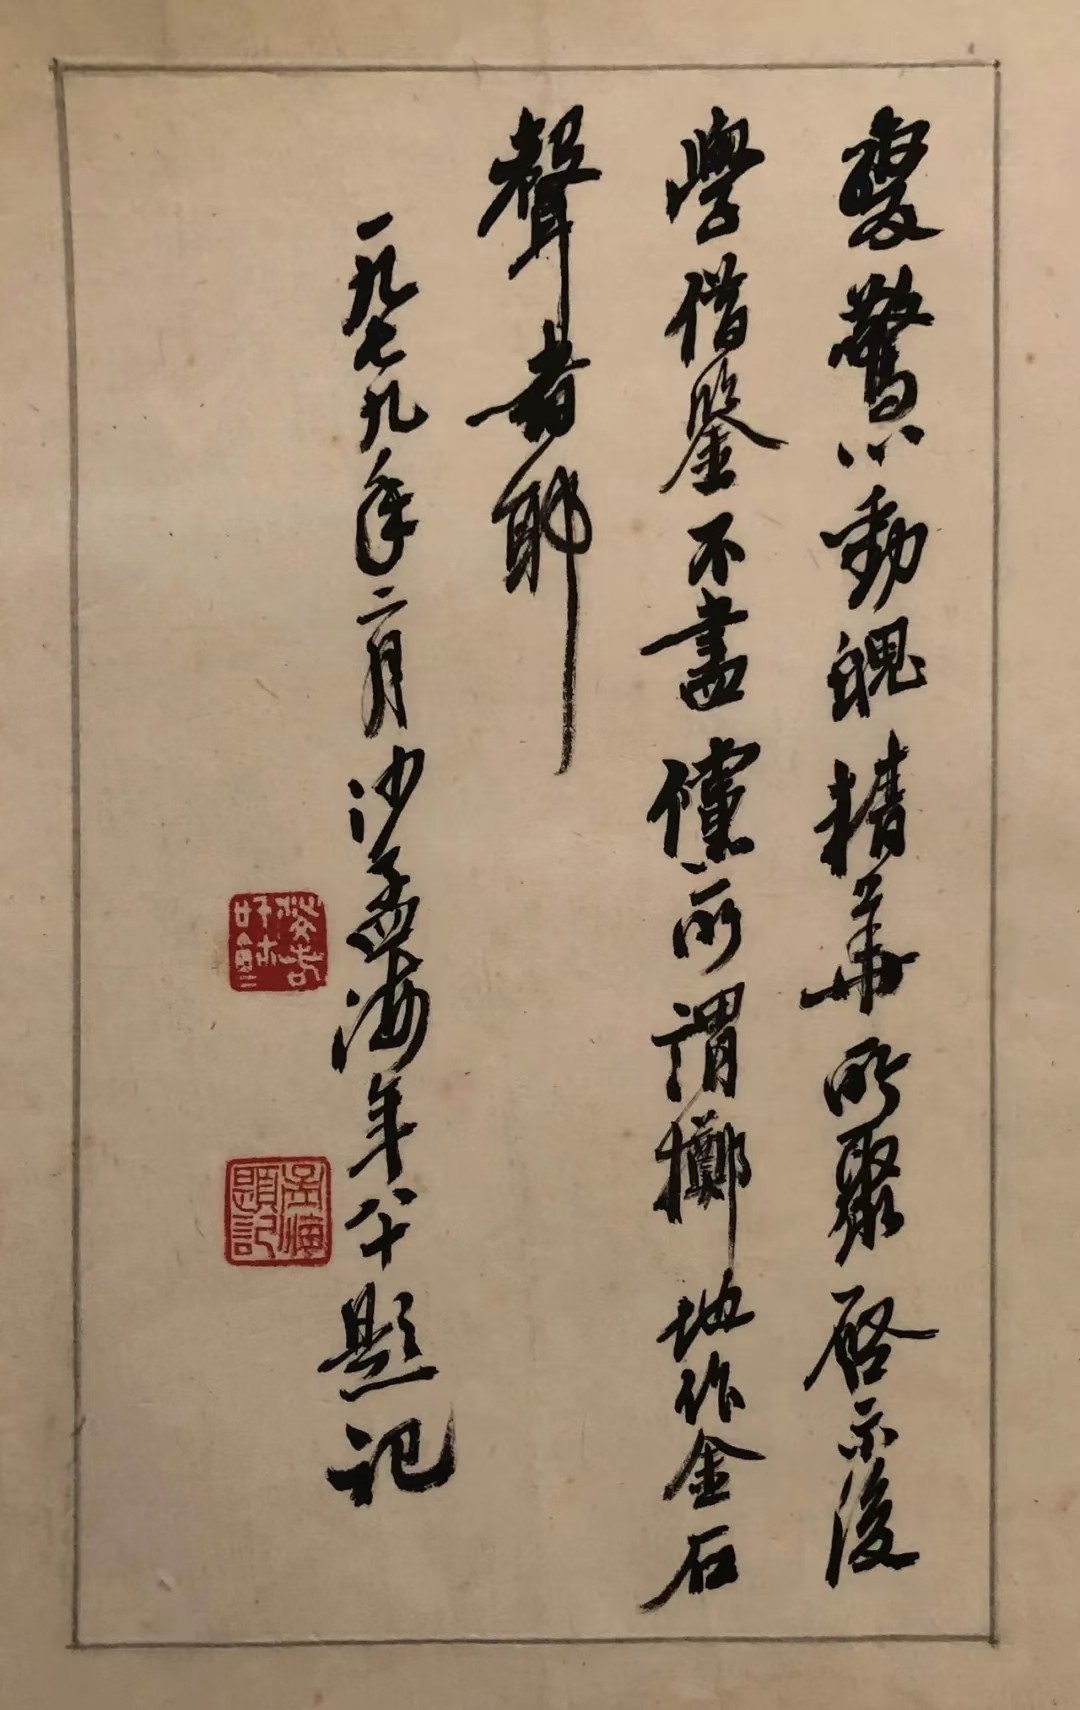 驚心動魄精華所聚啓示後
學借鑒不盡儻所謂擲地作金石
聲者耶
一九七九年二月沙孟海年八十題記
孟海題記